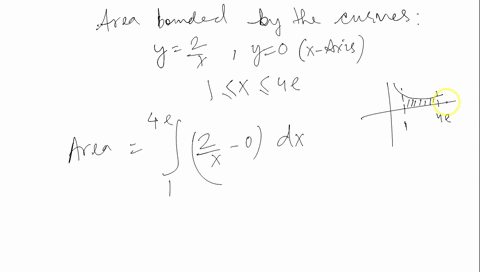 Area bounded by the curves:
y = 2/x , y=0 (x-Axis)
1 ≤ x ≤ 4e
1 4e
Area = ∫₁^4e (2/x - 0) dx